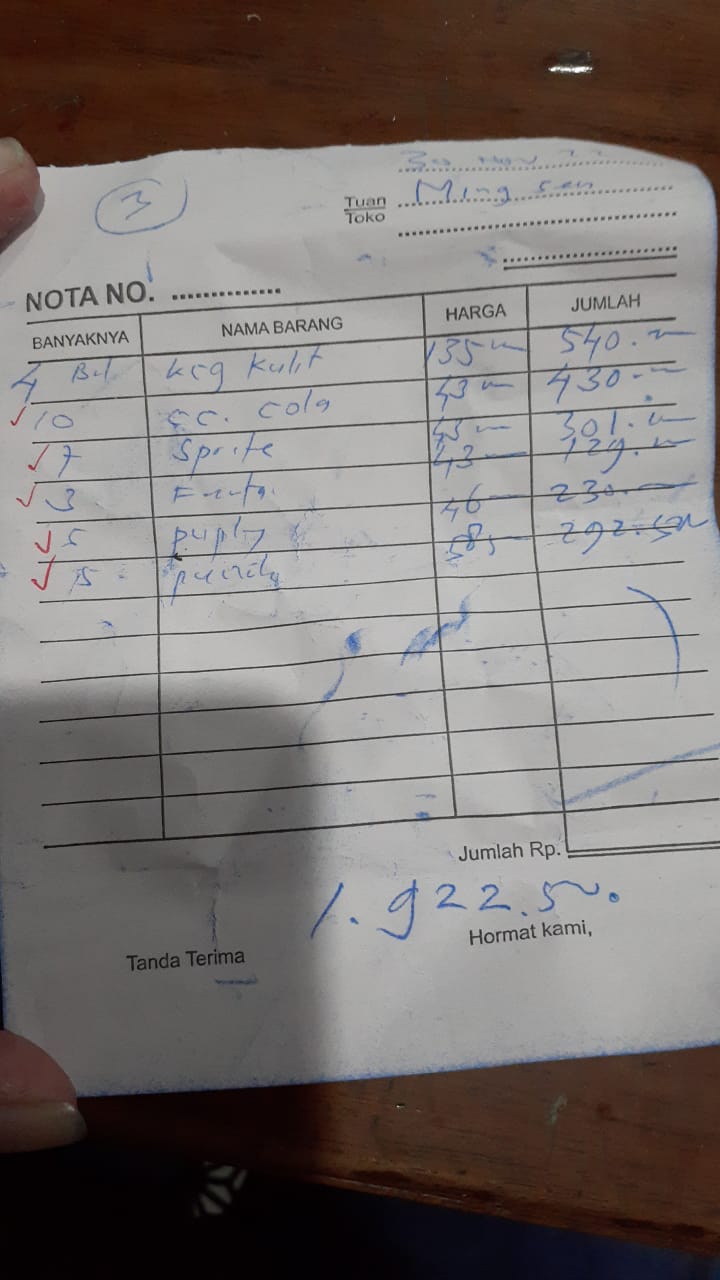 30 Nov 22
3
Tuan Ming sen
Toko
NOTA NO. ..............
BANYAKNYA NAMA BARANG HARGA JUMLAH
4 Bal kcg kulit 135 540.
10 c.c. cola 43 430.
7 Sprite 43 301.
3 Fanta 43 129.
5 pulpy 46 230.
5 585 292.500
Jumlah Rp.
1.922.500.
Tanda Terima Hormat kami,